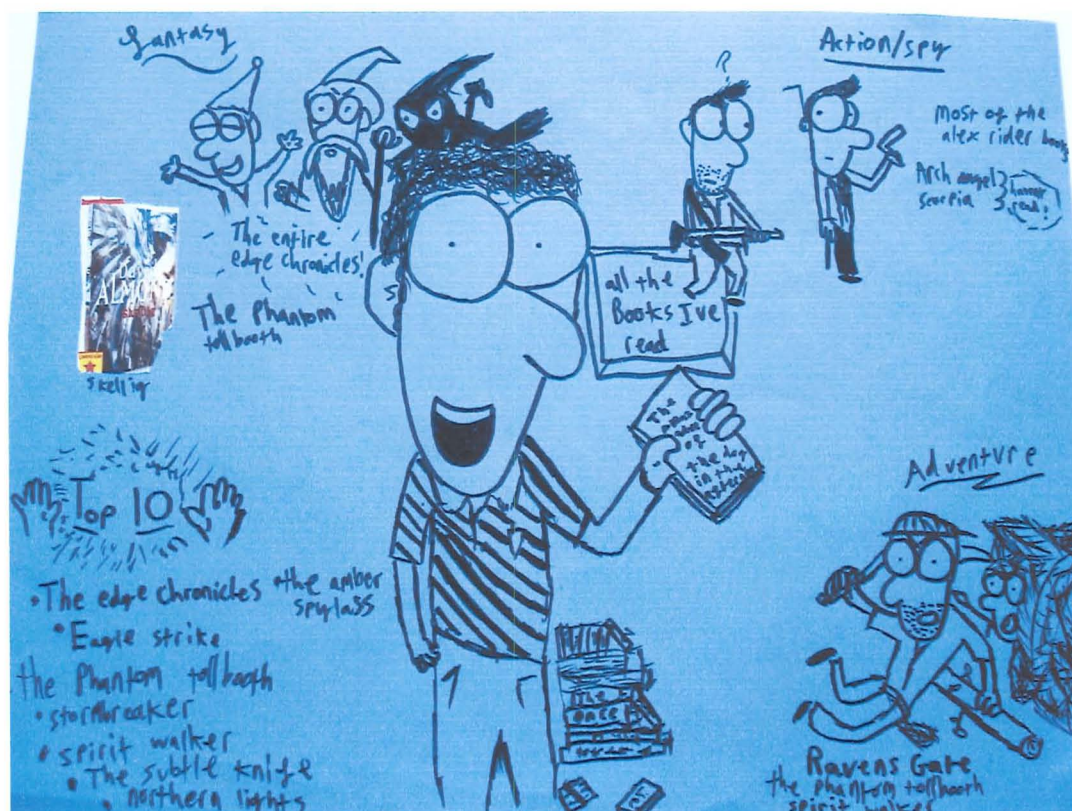 fantasy
The entire
edge chronicles!
The Phantom
tollbooth
ALMO
skellig
Action/spy
most of the
alex rider books
Arch angel
scorpia
?
all the
Books I've
read
The
of
the dog
in the
Top 10
• The edge chronicles • the amber
spylass
• Eagle strike
the Phantom tollbooth
• stormbreaker
• spirit walker
• The subtle knife
• northern lights
The
once
Adventure
Ravens Gate
the phantom tollbooth
spirit walker